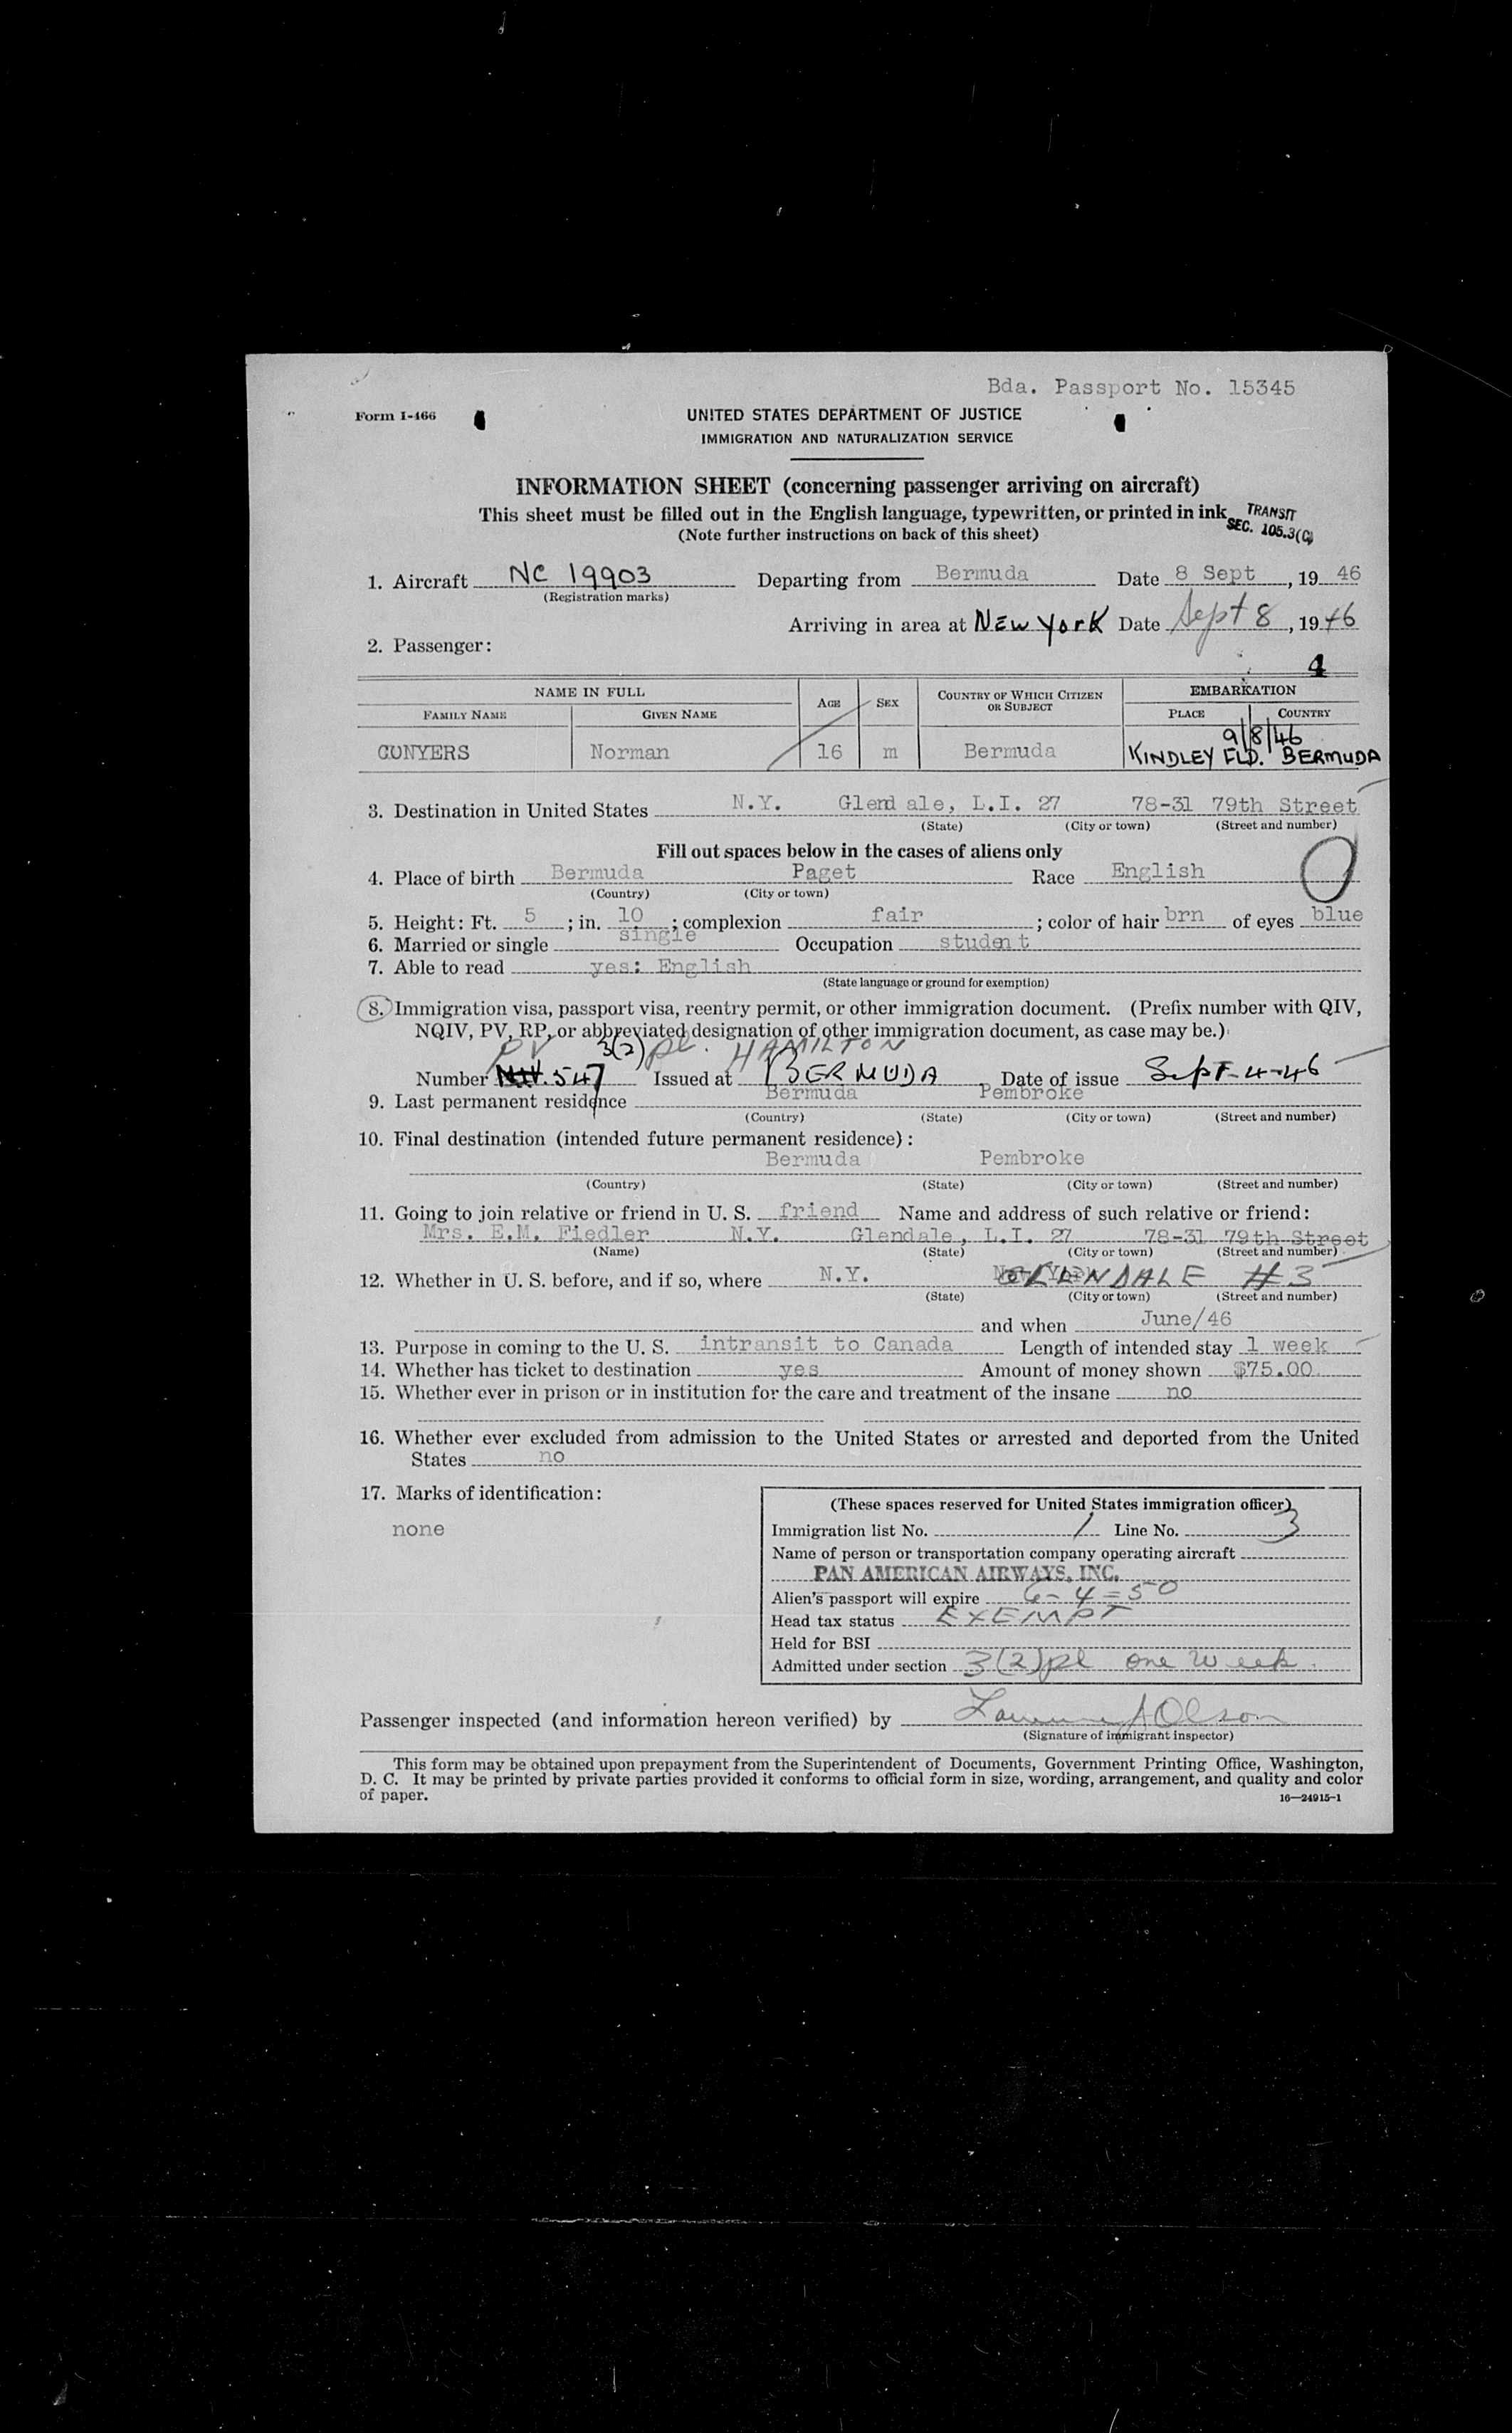 Bda. Passport No. 15345
Form I-466
UNITED STATES DEPARTMENT OF JUSTICE
IMMIGRATION AND NATURALIZATION SERVICE
INFORMATION SHEET (concerning passenger arriving on aircraft)
This sheet must be filled out in the English language, typewritten, or printed in ink
TRANSIT
SEC. 105.3(C)
(Note further instructions on back of this sheet)
1. Aircraft NC 19903 Departing from Bermuda Date 8 Sept, 19 46
(Registration marks)
Arriving in area at NEW YORK Date Sept 8, 1946
2. Passenger:
4
NAME IN FULL AGE SEX COUNTRY OF WHICH CITIZEN OR SUBJECT EMBARKATION
FAMILY NAME GIVEN NAME PLACE COUNTRY
9/8/46
CONYERS Norman 16 m Bermuda KINDLEY FLD. BERMUDA
3. Destination in United States N.Y. Glendale, L.I. 27 78-31 79th Street
(State) (City or town) (Street and number)
Fill out spaces below in the cases of aliens only
4. Place of birth Bermuda Paget Race English
(Country) (City or town)
5. Height: Ft. 5 ; in. 10 ; complexion fair ; color of hair brn of eyes blue
6. Married or single single Occupation student
7. Able to read yes: English
(State language or ground for exemption)
8. Immigration visa, passport visa, reentry permit, or other immigration document. (Prefix number with QIV,
NQIV, PV, RP, or abbreviated designation of other immigration document, as case may be.)
PV 3(2) pl. HAMILTON
Number 547 Issued at BERMUDA Date of issue Sept-4-46
9. Last permanent residence Bermuda Pembroke
(Country) (State) (City or town) (Street and number)
10. Final destination (intended future permanent residence):
Bermuda Pembroke
(Country) (State) (City or town) (Street and number)
11. Going to join relative or friend in U. S. friend Name and address of such relative or friend:
Mrs. E.M. Fiedler N.Y. Glendale, L.I. 27 78-31 79th Street
(Name) (State) (City or town) (Street and number)
12. Whether in U. S. before, and if so, where N.Y. GLENDALE #3
(State) (City or town) (Street and number)
and when June/46
13. Purpose in coming to the U. S. intransit to Canada Length of intended stay 1 week
14. Whether has ticket to destination yes Amount of money shown $75.00
15. Whether ever in prison or in institution for the care and treatment of the insane no
16. Whether ever excluded from admission to the United States or arrested and deported from the United
States no
17. Marks of identification:
none
(These spaces reserved for United States immigration officer)
Immigration list No. 1 Line No. 3
Name of person or transportation company operating aircraft
PAN AMERICAN AIRWAYS, INC.
Alien's passport will expire 6-4-50
Head tax status EXEMPT
Held for BSI
Admitted under section 3(2)pl one week
Passenger inspected (and information hereon verified) by A Olson
(Signature of immigrant inspector)
This form may be obtained upon prepayment from the Superintendent of Documents, Government Printing Office, Washington,
D. C. It may be printed by private parties provided it conforms to official form in size, wording, arrangement, and quality and color
of paper.
16—24915-1